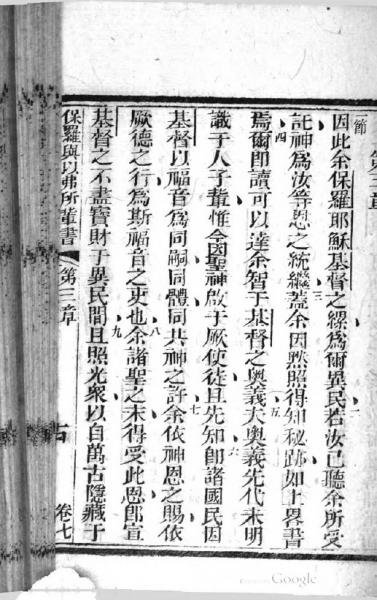 節
第三章
因此余保羅耶穌基督之縲為爾異民若汝已聽余所受
託神為汝等恩之統繼蓋余因默照得知秘跡如上畧書
焉爾卽讀可以達余智于基督之奧義夫奧義先代未明
識于人子輩惟今因聖神啟于厥使徒且先知卽諸國民因
基督以福音為同嗣同體同共神之許余依神恩之賜依
厥德之行為斯福音之吏也余諸聖之末得受此恩卽宣
基督之不盡寶財于異民間且照光衆以自萬古隱藏于
保羅與以弗所輩書 第三章 卷七
Google